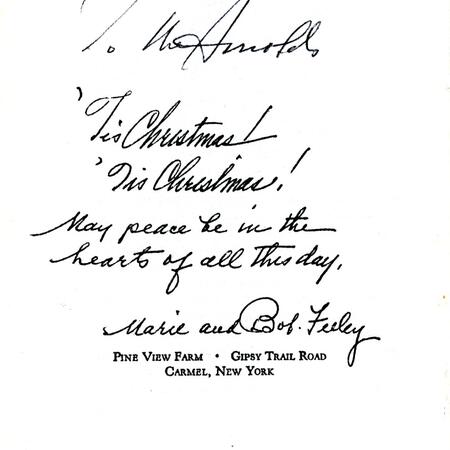 To the Arnolds
'Tis Christmas!
'Tis Christmas!
May peace be in the
hearts of all this day.
Marie and Bob. Feeley
PINE VIEW FARM • GIPSY TRAIL ROAD
CARMEL, NEW YORK